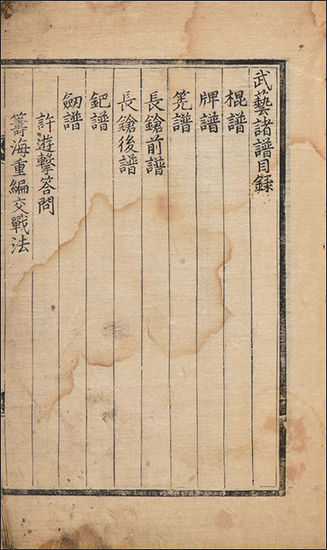 武藝諸譜目錄
棍譜
牌譜
筅譜
長鎗前譜
長鎗後譜
鈀譜
劒譜
許遊擊答問
籌海重編交戰法